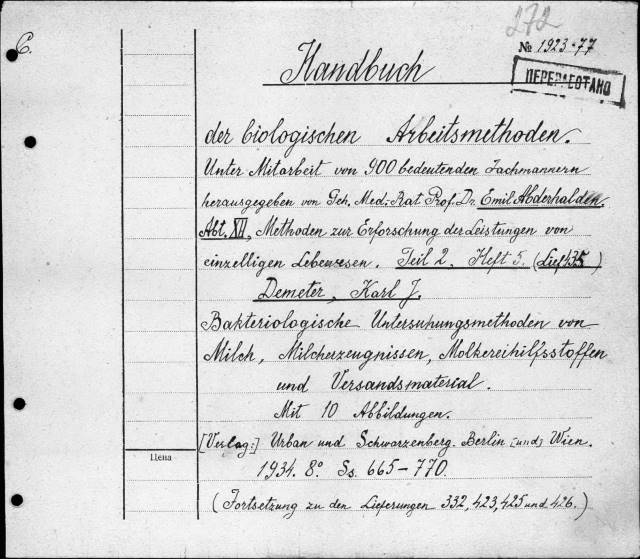 272
C.
№ 1923-77
Handbuch
ПЕРЕРАБОТАНО
der biologischen Arbeitsmethoden.
Unter Mitarbeit von 900 bedeutenden Fachmannern
herausgegeben von Geh. Med.-Rat Prof. Dr. Emil Abderhalden.
Abt. XII, Methoden zur Erforschung der Leistungen von
einzelligen Lebewesen. Teil 2. Heft 5. (Lief. 435)
Demeter, Karl J.
Bakteriologische Untersuhungsmethoden von
Milch, Milcherzeugnissen, Molkereihilfsstoffen
und Versandsmaterial.
Mit 10 Abbildungen.
[Verlag:] Urban und Schwarzenberg. Berlin [und] Wien.
Цена
1934. 8° Ss. 665–770.
(Fortsetzung zu den Lieferungen 332, 423, 425 und 426.)